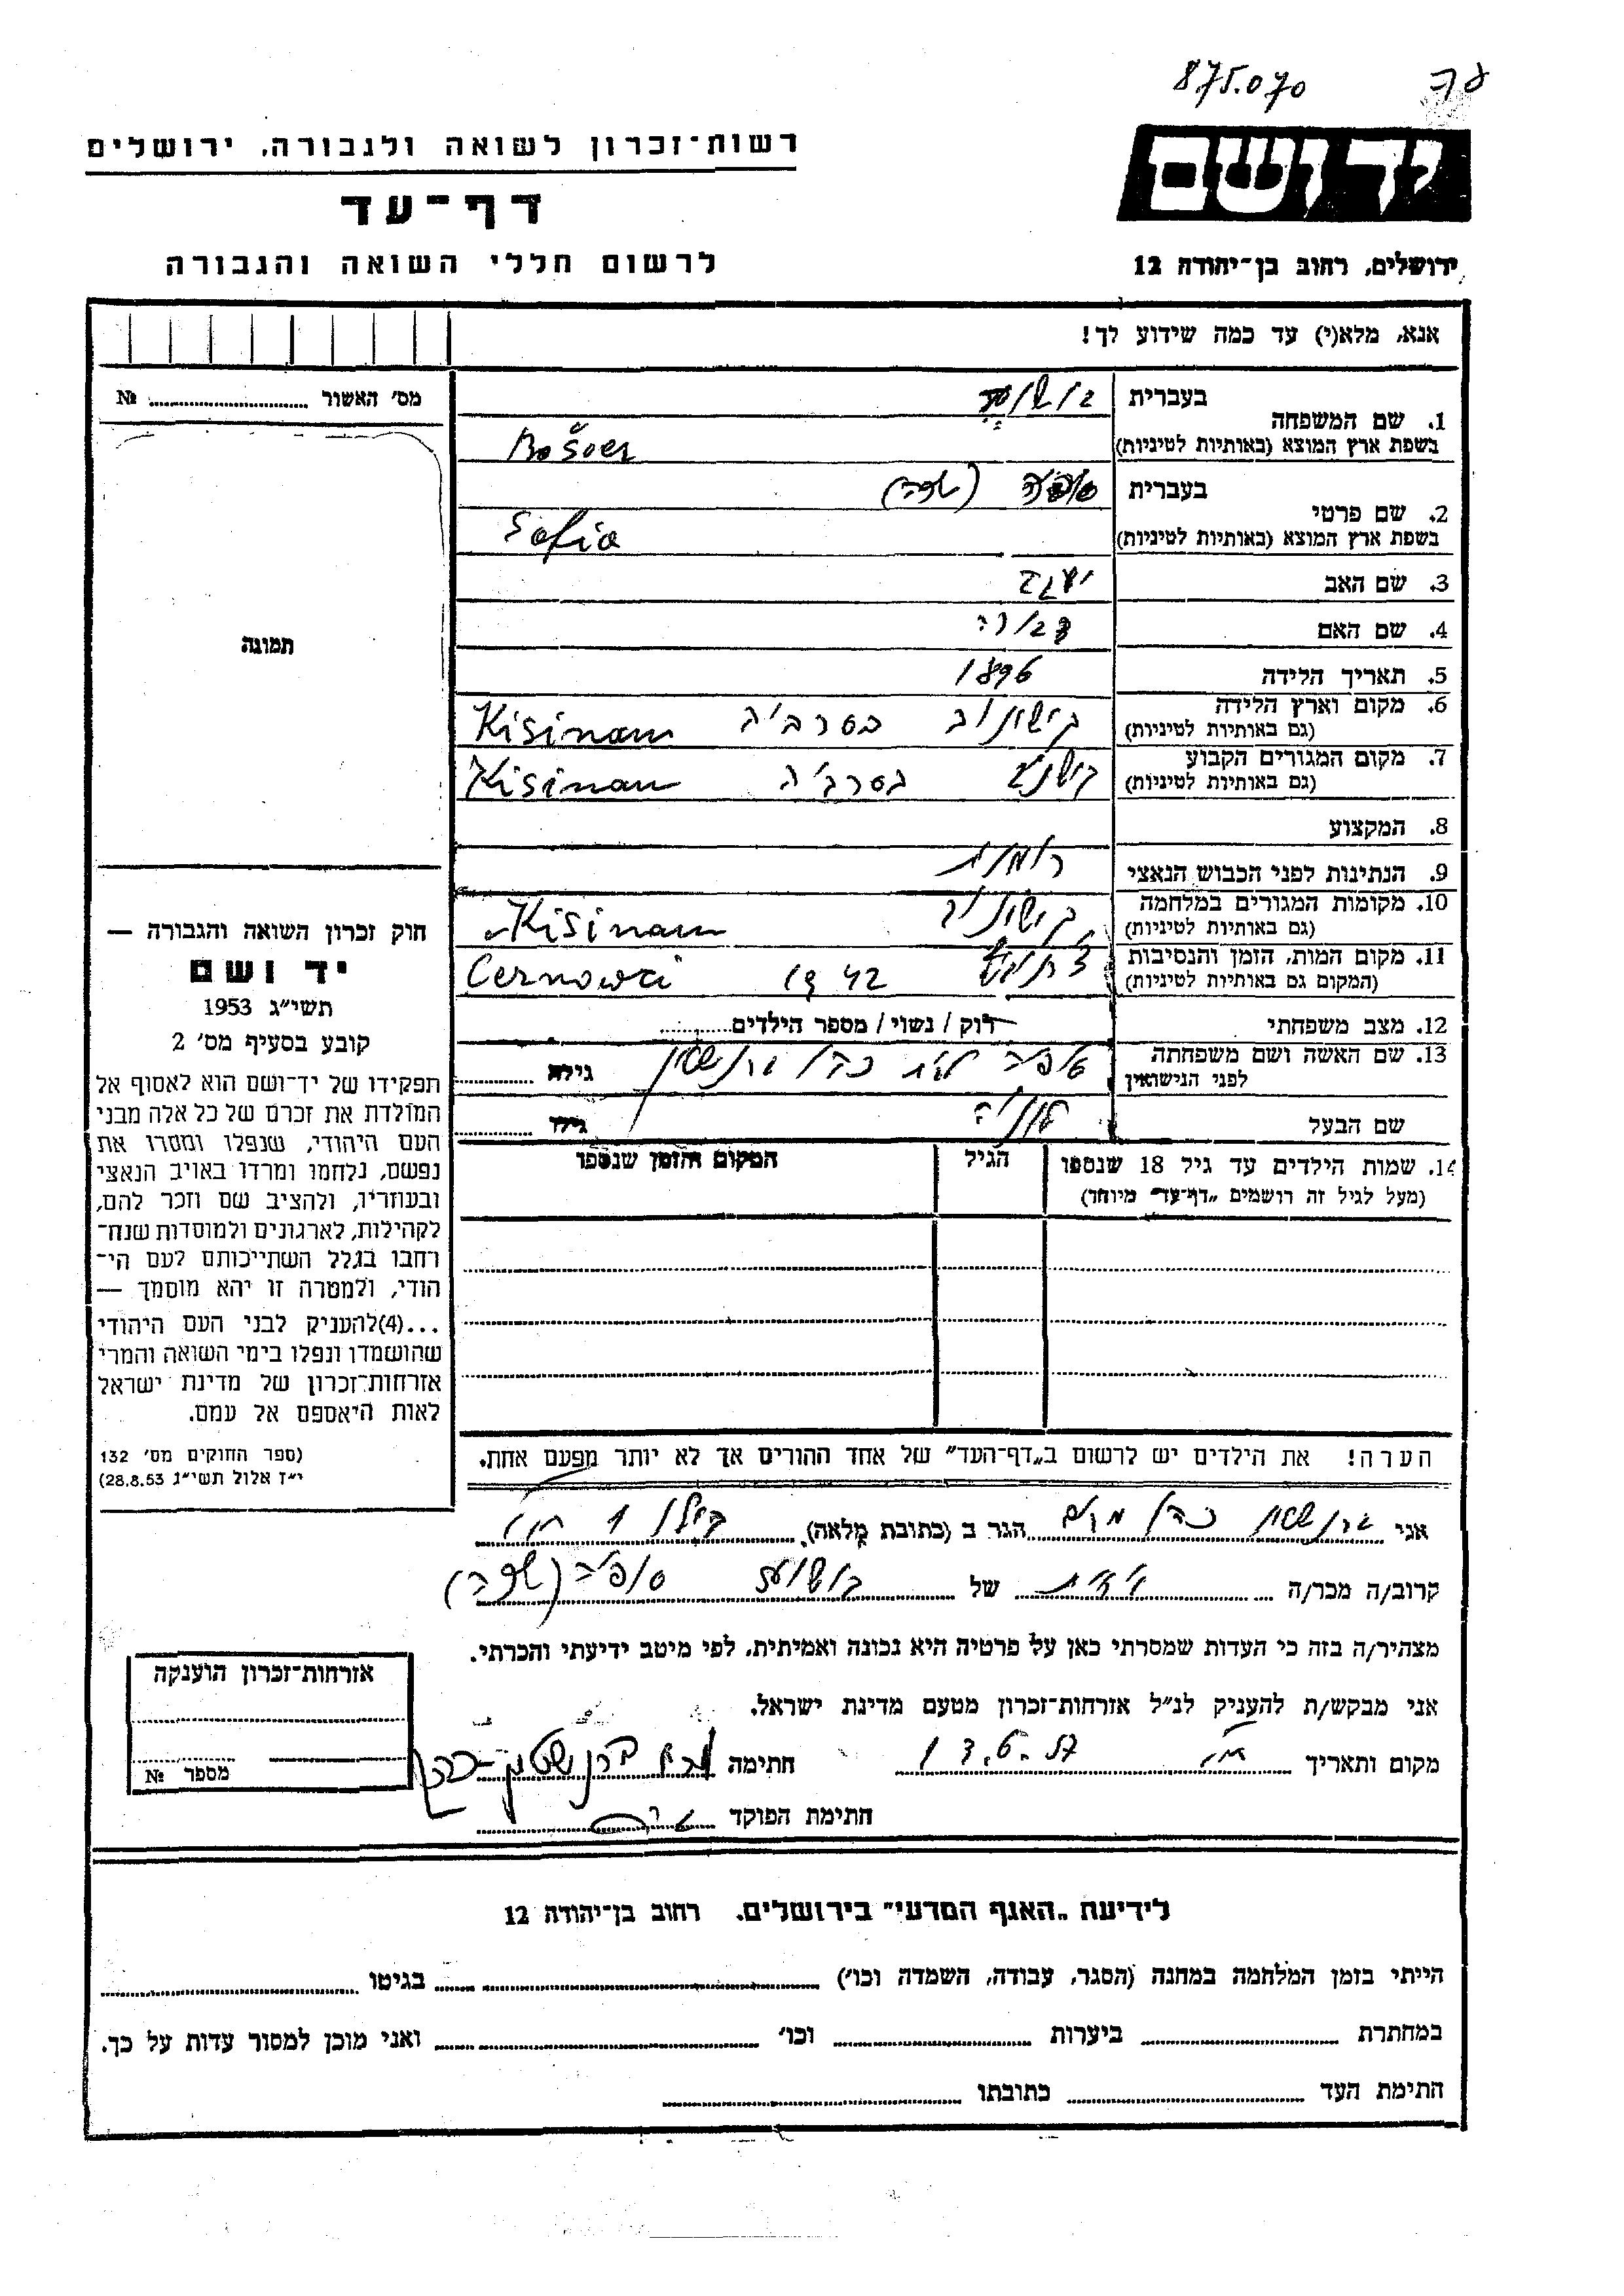 875.070
יד ושם
ירושלים, רחוב בן־יהודה 12
רשות־זכרון לשואה ולגבורה, ירושלים
דף־עד
לרשום חללי השואה והגבורה
אנא, מלא(י) עד כמה שידוע לך!
מס' האשור № 
תמונה
חוק זכרון השואה והגבורה —
יד ושם
תשי״ג 1953
קובע בסעיף מס' 2
תפקידו של יד־ושם הוא לאסוף אל
המולדת את זכרם של כל אלה מבני
העם היהודי, שנפלו ומסרו את
נפשם, נלחמו ומרדו באויב הנאצי
ובעוזריו, ולהציב שם וזכר להם,
לקהילות, לארגונים ולמוסדות שנח־
רחבו בגלל השתייכותם לעם הי־
הודי, ולמטרה זו יהא מוסמך —
...(4)להעניק לבני העם היהודי
שהושמדו ונפלו בימי השואה והמרי
אזרחות־זכרון של מדינת ישראל
לאות היאספם אל עמם.
(ספר החוקים מס' 132
י״ז אלול תשי״ג 28.8.53)
1. שם המשפחה בעברית
בשפת ארץ המוצא (באותיות לטיניות) Bošoer
2. שם פרטי בעברית סופיה (שפרה)
בשפת ארץ המוצא (באותיות לטיניות) Sofia
3. שם האב יעקב
4. שם האם דבורה
5. תאריך הלידה 1896
6. מקום וארץ הלידה (גם באותיות לטיניות) קישינוב בסרביה Kisinau
7. מקום המגורים הקבוע (גם באותיות לטיניות) קישינוב בסרביה Kisinau
8. המקצוע
9. הנתינות לפני הכבוש הנאצי רומנית
10. מקומות המגורים במלחמה (גם באותיות לטיניות) קישינוב Kisinau
11. מקום המות, הזמן והנסיבות (המקום גם באותיות לטיניות) 1942 Cernowci
12. מצב משפחתי רוק / נשוי / מספר הילדים
13. שם האשה ושם משפחתה לפני הנישואין סופיה לבית כהן ברנשטיין גילה
שם הבעל גילו
14. שמות הילדים עד גיל 18 שנספו הגיל המקום והזמן שנספו
(מעל לגיל זה רושמים „דף־עד״ מיוחד)
הערה! את הילדים יש לרשום ב„דף־העד״ של אחד ההורים אך לא יותר מפעם אחת.
אני ברנשטיין כהן מרים הגר ב (כתובת מלאה)
קרוב/ה מכר/ה של סופיה (שפרה)
מצהיר/ה בזה כי העדות שמסרתי כאן על פרטיה היא נכונה ואמיתית, לפי מיטב ידיעתי והכרתי.
אני מבקש/ת להעניק לנ״ל אזרחות־זכרון מטעם מדינת ישראל.
מקום ותאריך חתימה ברנשטיין־כהן
חתימת הפוקד
אזרחות־זכרון הוענקה
מספר №
לידיעת „האגף המדעי״ בירושלים, רחוב בן־יהודה 12
הייתי בזמן המלחמה במחנה (הסגר, עבודה, השמדה וכו') בגיטו
במחתרת ביערות וכו' ואני מוכן למסור עדות על כך.
חתימת העד כתובתו